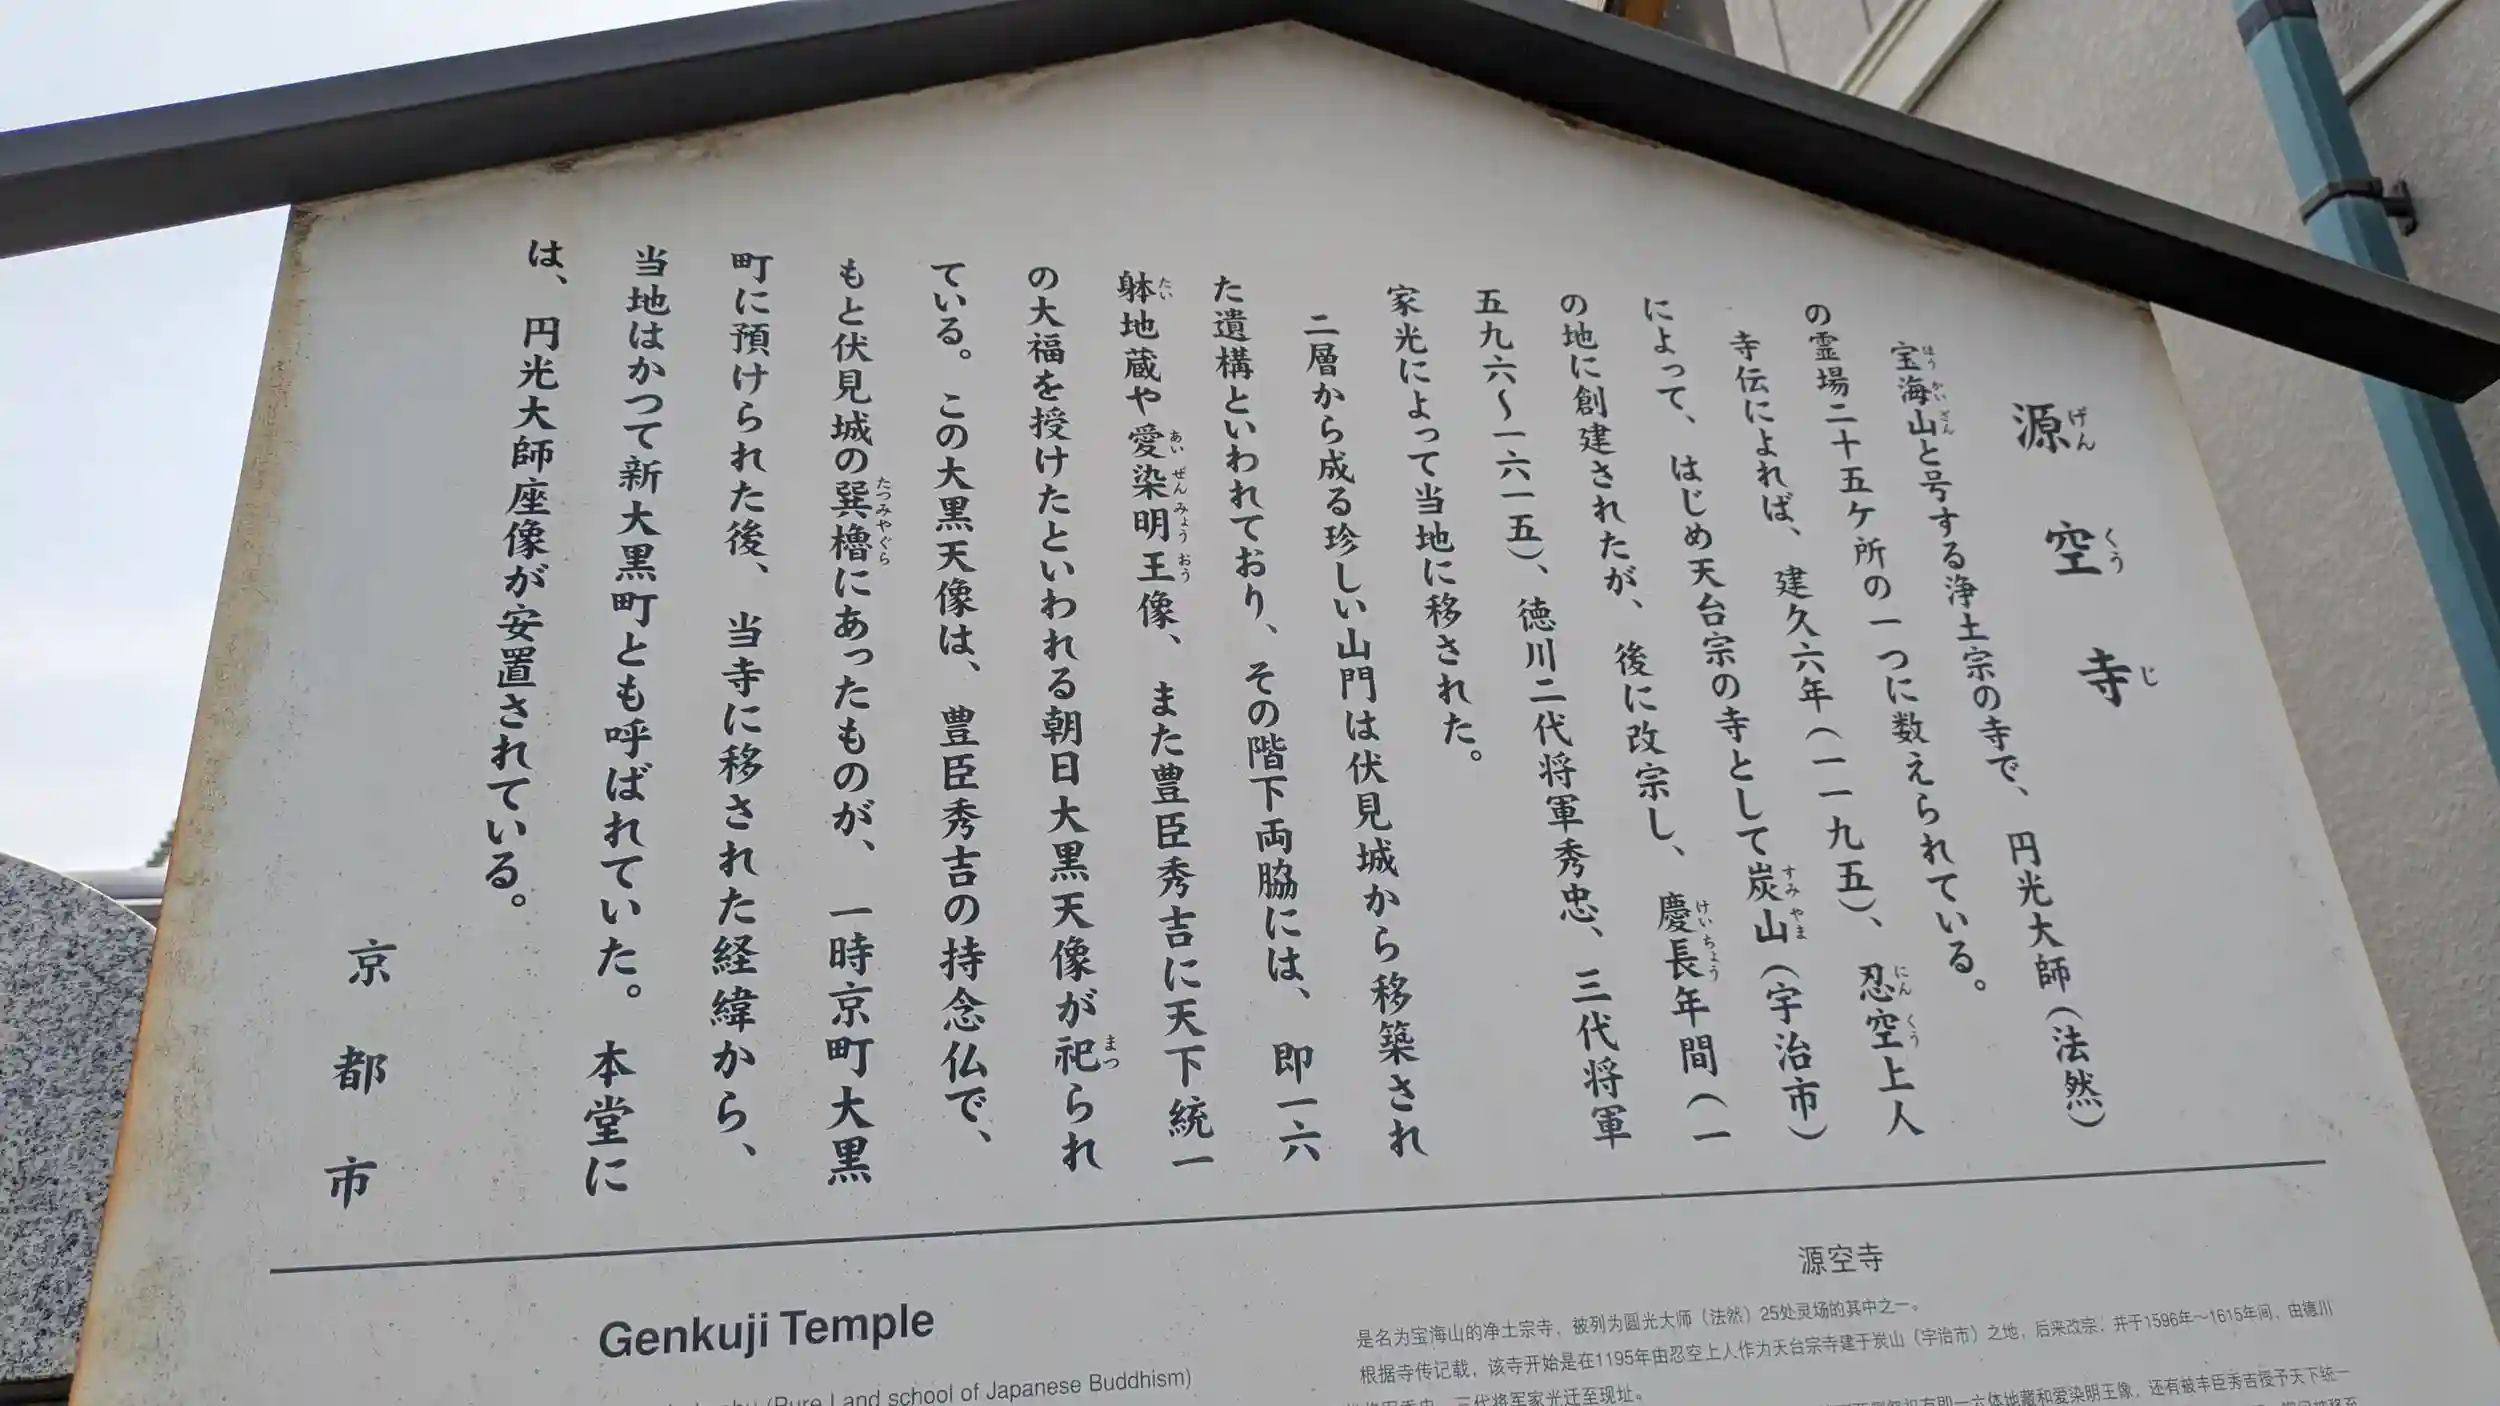 源空寺
げんくうじ
宝海山と号する浄土宗の寺で、円光大師（法然）
ほうかいざん
の霊場二十五ケ所の一つに数えられている。
寺伝によれば、建久六年（一一九五）、忍空上人
にんくう
によって、はじめ天台宗の寺として炭山（宇治市）
すみやま
の地に創建されたが、後に改宗し、慶長年間（一
けいちょう
五九六〜一六一五）、徳川二代将軍秀忠、三代将軍
家光によって当地に移された。
二層から成る珍しい山門は伏見城から移築され
た遺構といわれており、その階下両脇には、即一六
躰地蔵や愛染明王像、また豊臣秀吉に天下統一
たい あいぜんみょうおう
の大福を授けたといわれる朝日大黒天像が祀られ
まつ
ている。この大黒天像は、豊臣秀吉の持念仏で、
もと伏見城の巽櫓にあったものが、一時京町大黒
たつみやぐら
町に預けられた後、当寺に移された経緯から、
当地はかつて新大黒町とも呼ばれていた。本堂に
は、円光大師座像が安置されている。
京都市
Genkuji Temple
(Pure Land school of Japanese Buddhism)
源空寺
是名为宝海山的净土宗寺，被列为圆光大师（法然）25处灵场的其中之一。
根据寺传记载，该寺开始是在1195年由忍空上人作为天台宗寺建于炭山（宇治市）之地，后来改宗；并于1596年～1615年间，由德川
三代将军家光迁至现址。
即一六体地藏和爱染明王像，还有被丰臣秀吉授予天下统一